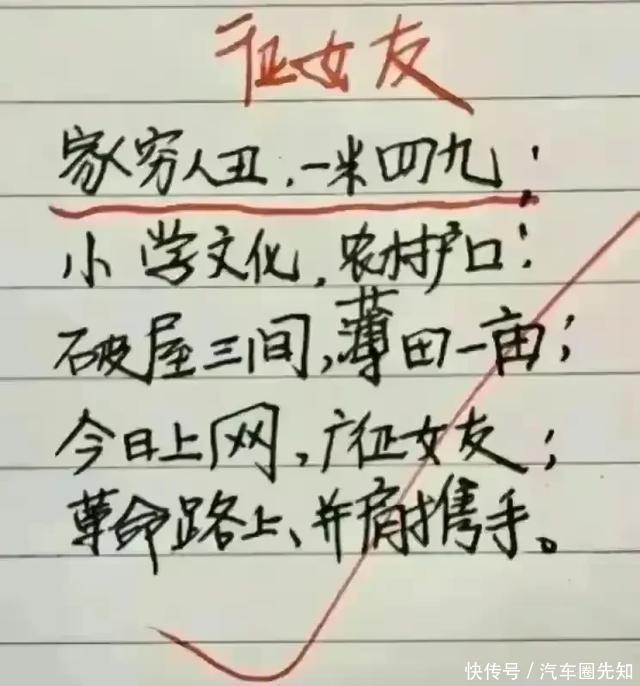 征女友
家穷人丑,一米四九;
小学文化,农村户口;
破屋三间,薄田一亩;
今日上网,广征女友;
革命路上、并肩携手。
快传号/汽车圈先知